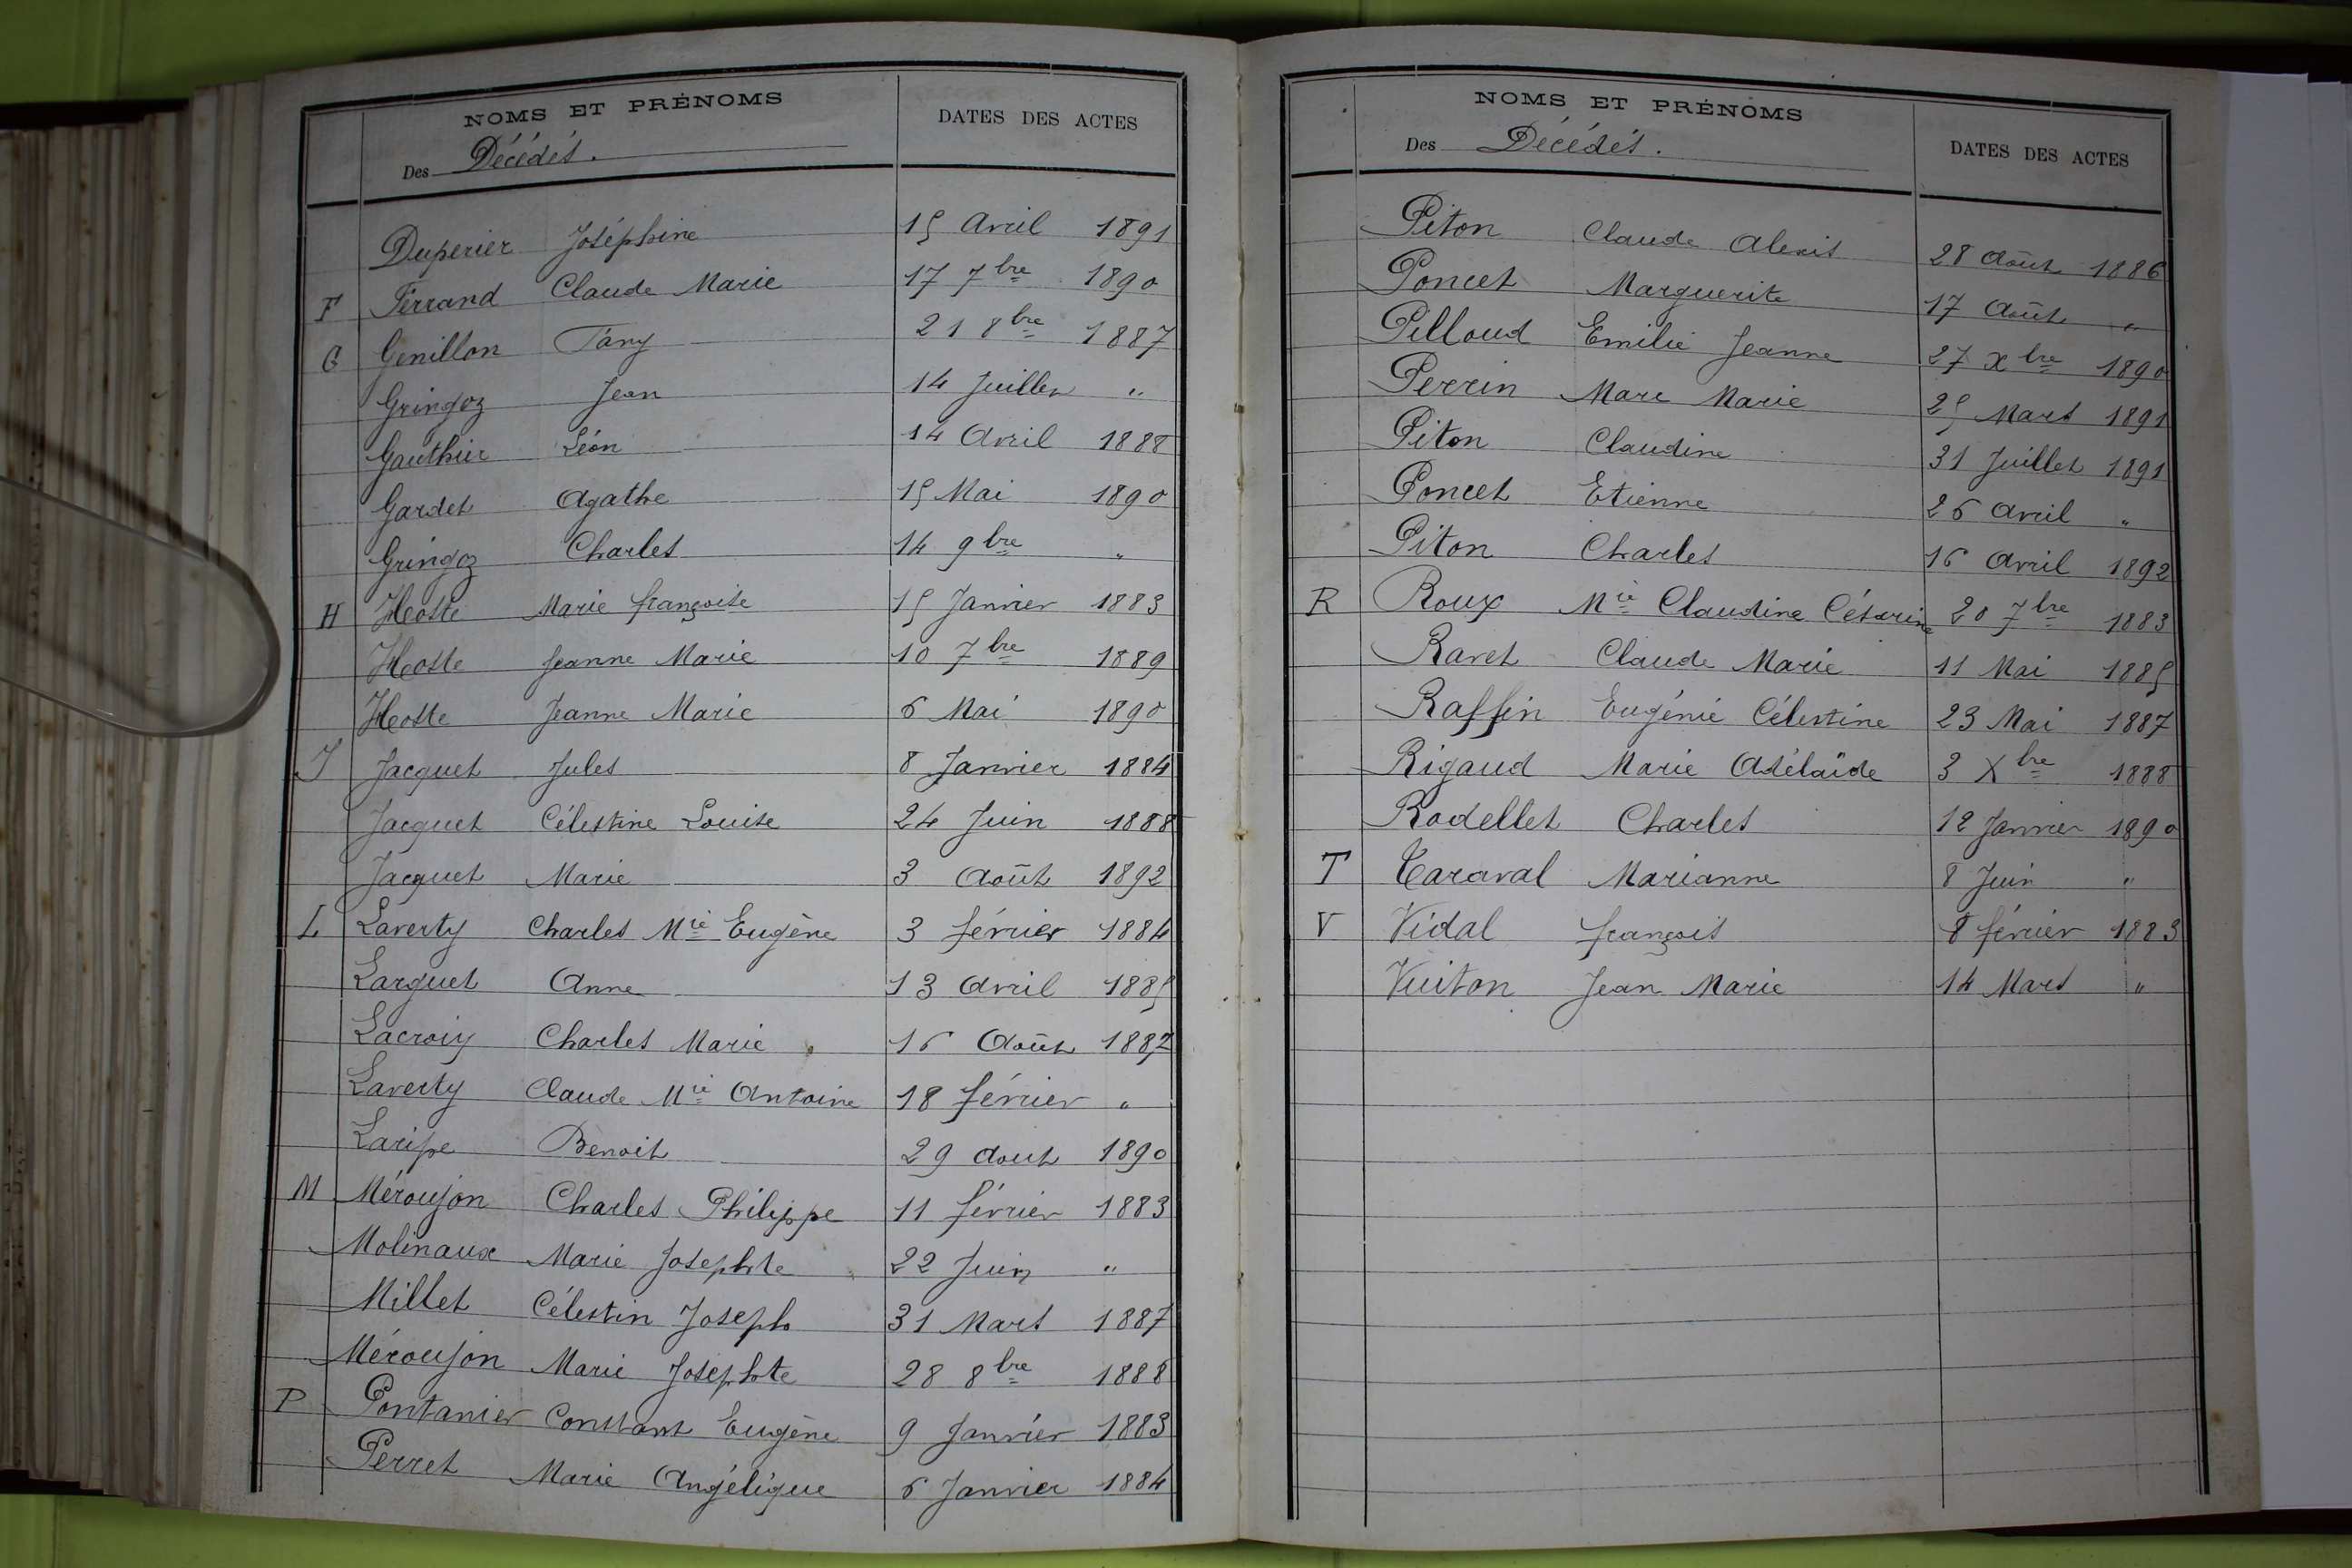 NOMS ET PRÉNOMS DATES DES ACTES
Des Décédés.
Duperier Joséphine 15 Avril 1891
F Ferrand Claude Marie 17 7bre 1890
G Genillon Fany 21 8bre 1887
Gringoz Jean 14 Juillet "
Gauthier Léon 14 Avril 1888
Gardet Agathe 15 Mai 1890
Gringoz Charles 14 9bre "
H Hoste Marie françoise 15 Janvier 1883
Hoste Jeanne Marie 10 7bre 1889
Hoste Jeanne Marie 6 Mai 1890
J Jacquet Jules 8 Janvier 1884
Jacquet Célestine Louise 24 Juin 1888
Jacquet Marie 3 Août 1892
L Laverty Charles Mie Eugène 3 février 1884
Larguet Anne 13 Avril 1885
Lacroix Charles Marie 16 Août 1887
Laverty Claude Mie Antoine 18 février "
Laripe Benoit 29 Aout 1890
M Méroujon Charles Philippe 11 février 1883
Molinaux Marie Josephte 22 Juin "
Millet Célestin Joseph 31 Mars 1887
Méroujon Marie Josephte 28 8bre 1888
P Pontanier Constant Eugène 9 Janvier 1883
Perret Marie Angélique 6 Janvier 1884
NOMS ET PRÉNOMS DATES DES ACTES
Des Décédés.
Piton Claude Alexis 28 Août 1886
Poncet Marguerite 17 Août "
Pilloud Emilie Jeanne 27 Xbre 1890
Perrin Marc Marie 25 Mars 1891
Piton Claudine 31 Juillet 1891
Poncet Etienne 26 Avril "
Piton Charles 16 Avril 1892
R Roux Mie Claudine Césarine 20 7bre 1883
Ravet Claude Marie 11 Mai 1885
Raffin Eugénie Célestine 23 Mai 1887
Rigaud Marie Adélaïde 3 Xbre 1888
Rodellet Charles 12 Janvier 1890
T Taraval Marianne 8 Juin "
V Vidal françois 8 février 1883
Vuiton Jean Marie 14 Mars "